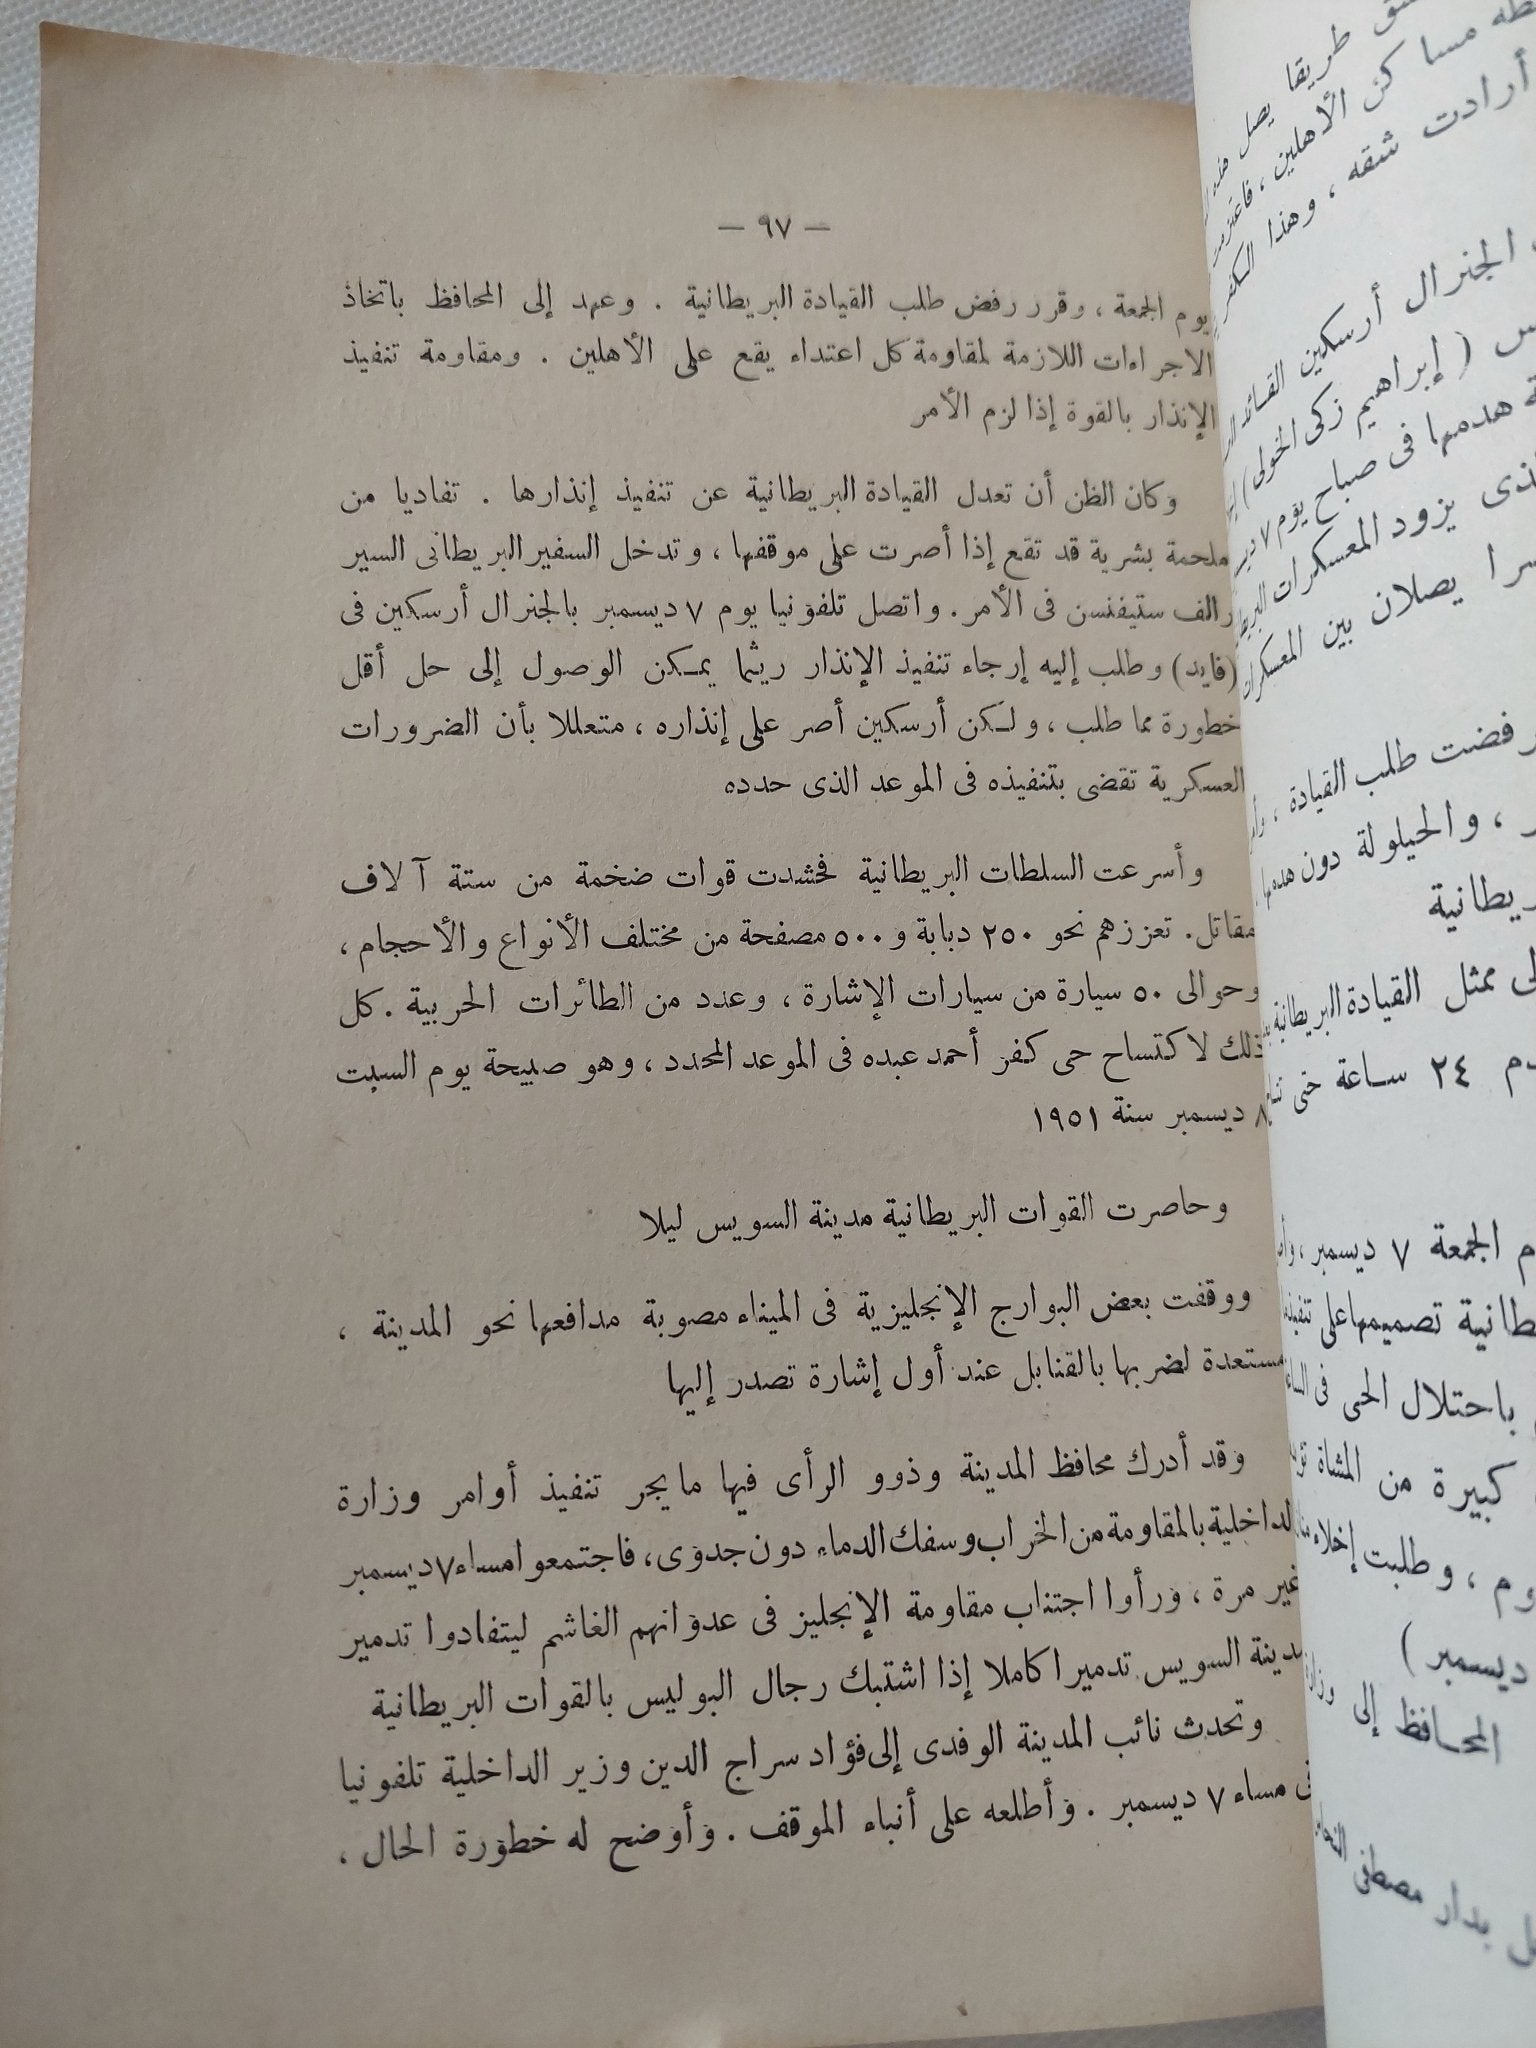 — ٩٧ —
يوم الجمعة ، وقرر رفض طلب القيادة البريطانية . وعهد إلى المحافظ باتخاذ
الاجراءات اللازمة لمقاومة كل اعتداء يقع على الأهلين . ومقاومة تنفيذ
الإنذار بالقوة إذا لزم الأمر
وكان الظن أن تعدل القيادة البريطانية عن تنفيذ إنذارها . تفاديا من
ملحمة بشرية قد تقع إذا أصرت على موقفها ، وتدخل السفير البريطانى السير
رالف ستيفنسن فى الأمر . واتصل تلفونيا يوم ٧ ديسمبر بالجنرال أرسكين فى
(فايد) وطلب إليه إرجاء تنفيذ الإنذار ريثما يمكن الوصول إلى حل أقل
خطورة مما طلب ، ولكن أرسكين أصر على إنذاره ، متعللا بأن الضرورات
العسكرية تقضى بتنفيذه فى الموعد الذى حدده
وأسرعت السلطات البريطانية فحشدت قوات ضخمة من ستة آلاف
مقاتل . تعززهم نحو ٢٥٠ دبابة و ٥٠٠ مصفحة من مختلف الأنواع والأحجام ،
وحوالى ٥٠ سيارة من سيارات الإشارة ، وعدد من الطائرات الحربية . كل
ذلك لاكتساح حى كفر أحمد عبده فى الموعد المحدد ، وهو صبيحة يوم السبت
٨ ديسمبر سنة ١٩٥١
وحاصرت القوات البريطانية مدينة السويس ليلا
ووقفت بعض البوارج الإنجليزية فى الميناء مصوبة مدافعها نحو المدينة ،
مستعدة لضربها بالقنابل عند أول إشارة تصدر إليها
وقد أدرك محافظ المدينة وذوو الرأى فيها ما يجر تنفيذ أوامر وزارة
الداخلية بالمقاومة من الخراب وسفك الدماء دون جدوى ، فاجتمعوا مساء ٧ ديسمبر
غير مرة ، ورأوا اجتناب مقاومة الإنجليز فى عدوانهم الغاشم ليتفادوا تدمير
مدينة السويس تدميرا كاملا إذا اشتبك رجال البوليس بالقوات البريطانية
وتحدث نائب المدينة الوفدى إلى فؤاد سراج الدين وزير الداخلية تلفونيا
فى مساء ٧ ديسمبر . وأطلعه على أنباء الموقف . وأوضح له خطورة الحال ،
طريقا يصل
مساكن الأهلين ،
أرادت شقه ، وهذا
الجنرال أرسكين القائد
( إبراهيم زكى الخولى )
هدمها فى صباح يوم ٧
يزود المعسكرات
يصلان بين المعسكرات
رفضت طلب القيادة ،
، والحيلولة دون هدمها
ممثل القيادة البريطانية
٢٤ ساعة حتى
الجمعة ٧ ديسمبر ،
تصميمها على
باحتلال الحى فى
كبيرة من المشاة
، وطلبت إخلاء
ديسمبر )
المحافظ إلى
بدار مصطفى